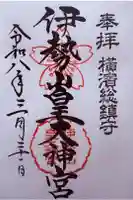 奉拝 横濱総鎮守
伊勢山皇大神宮
令和八年二月二十日